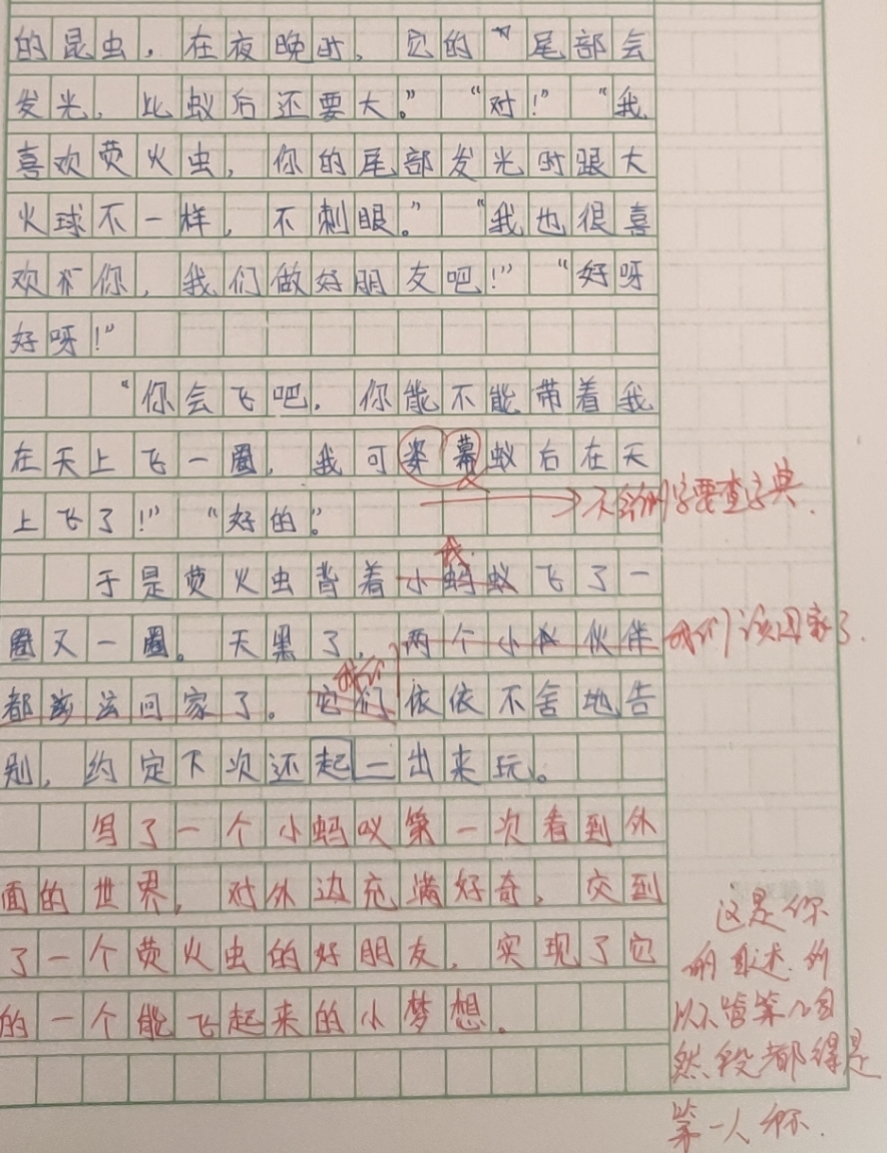 的昆虫，在夜晚时，它的“尾部会
发光，比蚁后还要大。”“对！”“我
喜欢荧火虫，你的尾部发光时跟大
火球不一样，不刺眼。”“我也很喜
欢你，我们做好朋友吧！”“好呀
好呀！”
“你会飞吧，你能不能带着我
在天上飞一圈，我可姜幕蚁后在天
上飞了！”“好的。”
不会的字要查字典.
我
于是荧火虫背着小蚂蚁飞了一
圈又一圈。天黑了，两个小伙伴
我们该回家了.
我们
都该回家了。它们依依不舍地告
别，约定下次还起一出来玩。
写了一个小蚂蚁第一次看到外
面的世界，对外边充满好奇，交到
了一个荧火虫的好朋友，实现了它
的一个能飞起来的小梦想。
这是你
的自述.所
以不管第几自
然段都得是
第一人称.